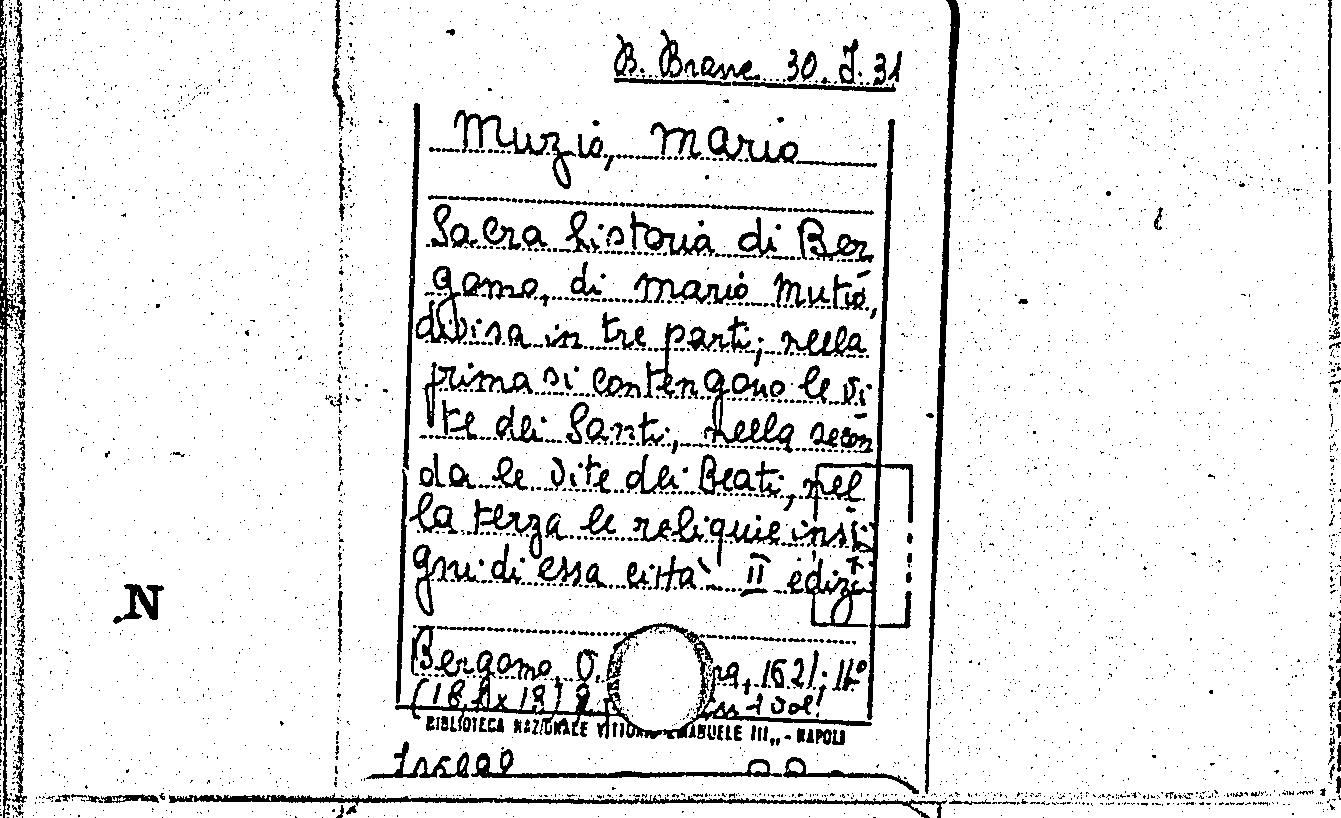 B. Branc. 30. J. 31
Muzio, Mario
Sacra historia di Ber
gamo, di Mario Mutio,
divisa in tre parti; nella
prima si contengono le vi
te dei Santi, nella secon
da le vite dei Beati, nel
la terza le reliquie insi
gni di essa città. II ediz.
N
Bergamo, 1621; 4°
in 1 vol.
BIBLIOTECA NAZIONALE VITTORIO EMANUELE III,, - NAPOLI